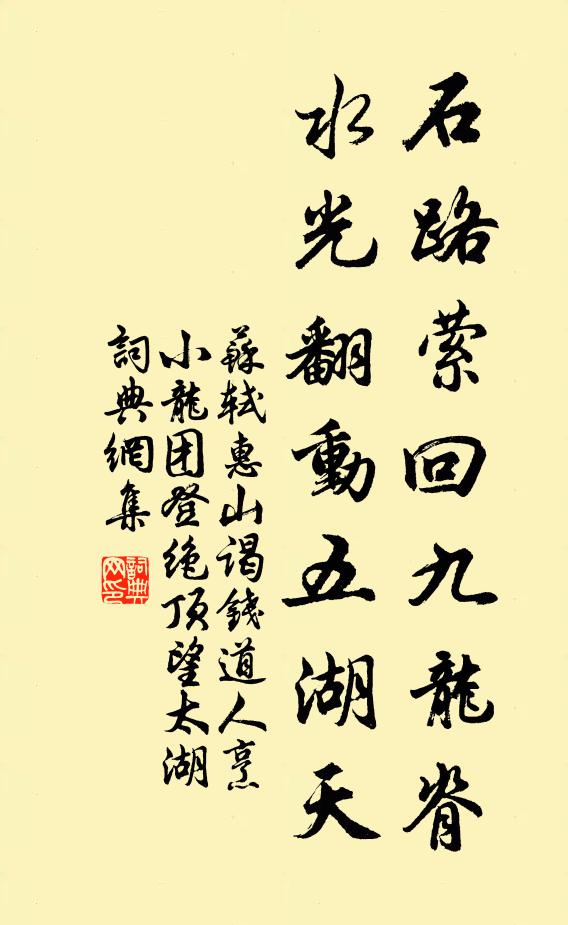 石路萦回九龍脊
水光翻動五湖天
蘇轼惠山谒錢道人烹
小龍团登绝顶望太湖
詞典網集
詞典
网印